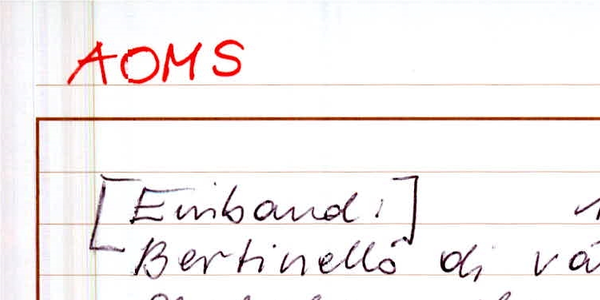 AOMS
[Einband:]
Bertinello di